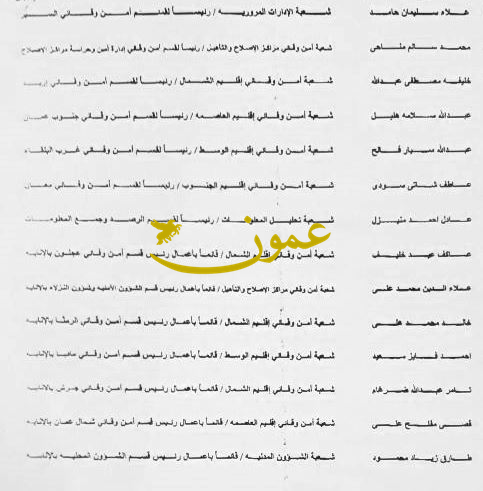 علاء سليمان حامد شعبة الإدارات المرورية / رئيساً لقسم أمن وقائي السير
محمد سالم مناهي شعبة أمن وقائي مراكز الاصلاح والتأهيل / رئيساً لقسم أمن وقائي إدارة أمن وحراسة مراكز الاصلاح
خليفه مصطفى عبدالله شعبة أمن وقائي إقليم الشمال / رئيساً لقسم أمن وقائي إربد
عبدالله سلامه هليل شعبة أمن وقائي إقليم العاصمه / رئيساً لقسم أمن وقائي جنوب عمان
عبدالله سيار فالح شعبة أمن وقائي إقليم الوسط / رئيساً لقسم أمن وقائي غرب البلقاء
عاطف شاتي سودي شعبة أمن وقائي إقليم الجنوب / رئيساً لقسم أمن وقائي معان
عادل احمد منيزل شعبة تحليل المعلومات / رئيساً لقسم الرصد وجمع المعلومات
عمون
عاكف عيد خليف شعبة أمن وقائي إقليم الشمال / قائماً بأعمال رئيس قسم أمن وقائي عجلون بالإنابه
علاء الدين محمد علي شعبة أمن وقائي مراكز الاصلاح والتأهيل / قائماً بأعمال رئيس قسم الشؤون الأمنيه وشؤون النزلاء بالإنابه
خالد محمد علي شعبة أمن وقائي إقليم الشمال / قائماً بأعمال رئيس قسم أمن وقائي الرمثا بالإنابه
احمد فايز سعيد شعبة أمن وقائي إقليم الوسط / قائماً بأعمال رئيس قسم أمن وقائي مادبا بالإنابه
ثامر عبدالله ضرغام شعبة أمن وقائي إقليم الشمال / قائماً بأعمال رئيس قسم أمن وقائي جرش بالإنابه
قصي مفلح علي شعبة أمن وقائي إقليم العاصمه / قائماً بأعمال رئيس قسم أمن وقائي شمال عمان بالإنابه
طارق زياد محمود شعبة الشؤون المدنيه / قائماً بأعمال رئيس قسم الشؤون المحليه بالإنابه